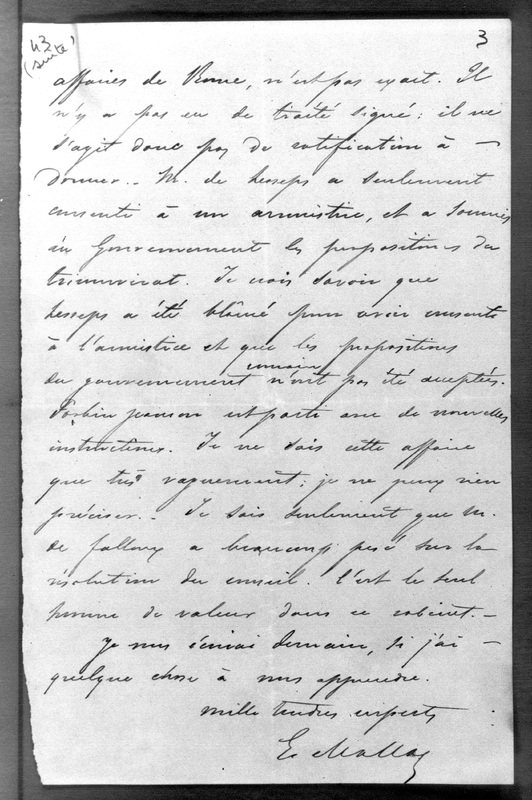 43
(suite)
3
affaires de Rome, n'est pas exact. Il
n'y a pas eu de traité signé : il ne
s'agit donc pas de ratification à —
donner.. M. de Lesseps a seulement
consenti à un armistice, et a soumis
au Gouvernement les propositions du
triumvirat. Je crois savoir que
Lesseps a été blâmé pour avoir consenti
à l'armistice et que les propositions
du gouvernement romain n'ont pas été acceptées.
est parti avec de nouvelles
instructions. Je ne sais cette affaire
que très vaguement ; je ne peux rien
préciser.. Je sais seulement que M.
de Falloux a beaucoup pesé sur la
résolution du conseil. C'est le seul
homme de valeur dans ce cabinet. —
Je vous écrirai demain, si j'ai —
quelque chose à vous apprendre.
Mille tendres respects